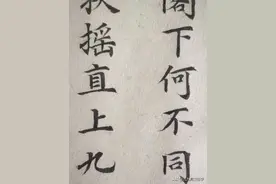 阁下何不同
扶摇直上九